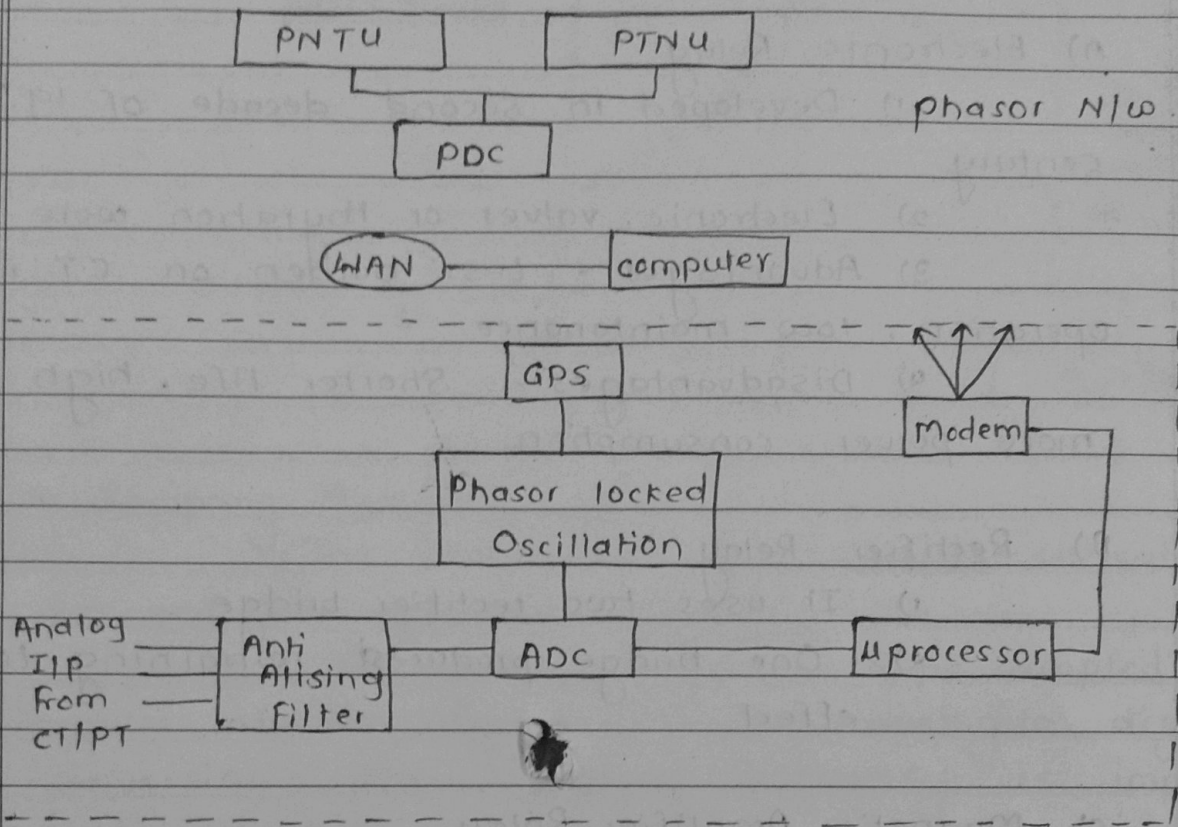 PNTU
PTNU
Phasor N/w
PDC
WAN
computer
GPS
Modem
Phasor locked
Oscillation
Analog
I/P
From
CT/PT
Anti
Alising
Filter
ADC
μprocessor